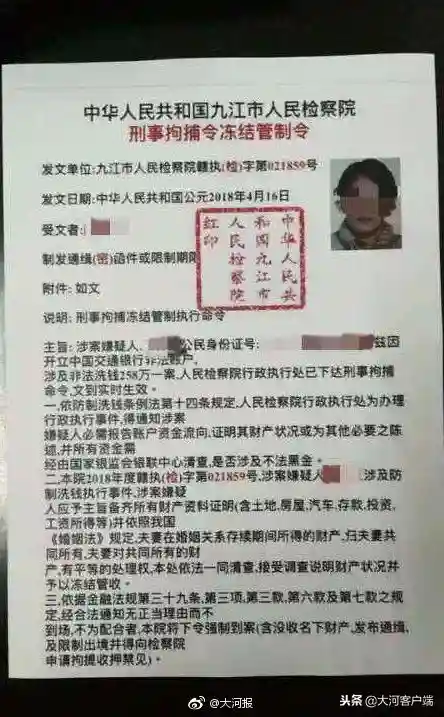 中华人民共和国九江市人民检察院
刑事拘捕令冻结管制令
发文单位:九江市人民检察院赣执(检)字第021859号
发文日期:中华人民共和国公元2018年4月16日
受文者:
制发通缉(密)函件或限制期限
附件:如文
中华人民共
和国九江市
人民检察院
红印
说明:刑事拘捕冻结管制执行命令
主旨:涉案嫌疑人、公民身份证号:兹因
开立中国交通银行非法账户,
涉及非法洗钱258万一案,人民检察院行政执行处已下达刑事拘捕
命令,文到实时生效。
一.依防制洗钱条例法第十四条规定,人民检察院行政执行处为办理
行政执行事件,得通知涉案
嫌疑人必需报告账户资金流向,证明其财产状况或为其他必要之陈
述,并所有资金需
经由国家银监会银联中心清查,是否涉及不法黑金。
二.本院2018年度赣执(检)字第021859号,涉案嫌疑人涉及防
制洗钱执行事件,涉案嫌疑
人应予主旨备齐所有财产资料证明(含土地,房屋,汽车,存款,投资,
工资所得等)并依照我国
《婚姻法》规定,夫妻在婚姻关系存续期间所得的财产,归夫妻共
同所有,夫妻对共同所有的财
产,有平等的处理权,本处依法一同清查,接受调查说明财产状况并
予以冻结管收。
三.依据金融法规第三十九条,第三项,第三款,第六款及第七款之规
定,经合法通知无正当理由而不
到场,不为配合者,本院将下令强制到案(含没收名下财产,发布通缉,
及限制出境并得向检察院
申请拘提收押禁见)。
@大河报
头条 @大河客户端